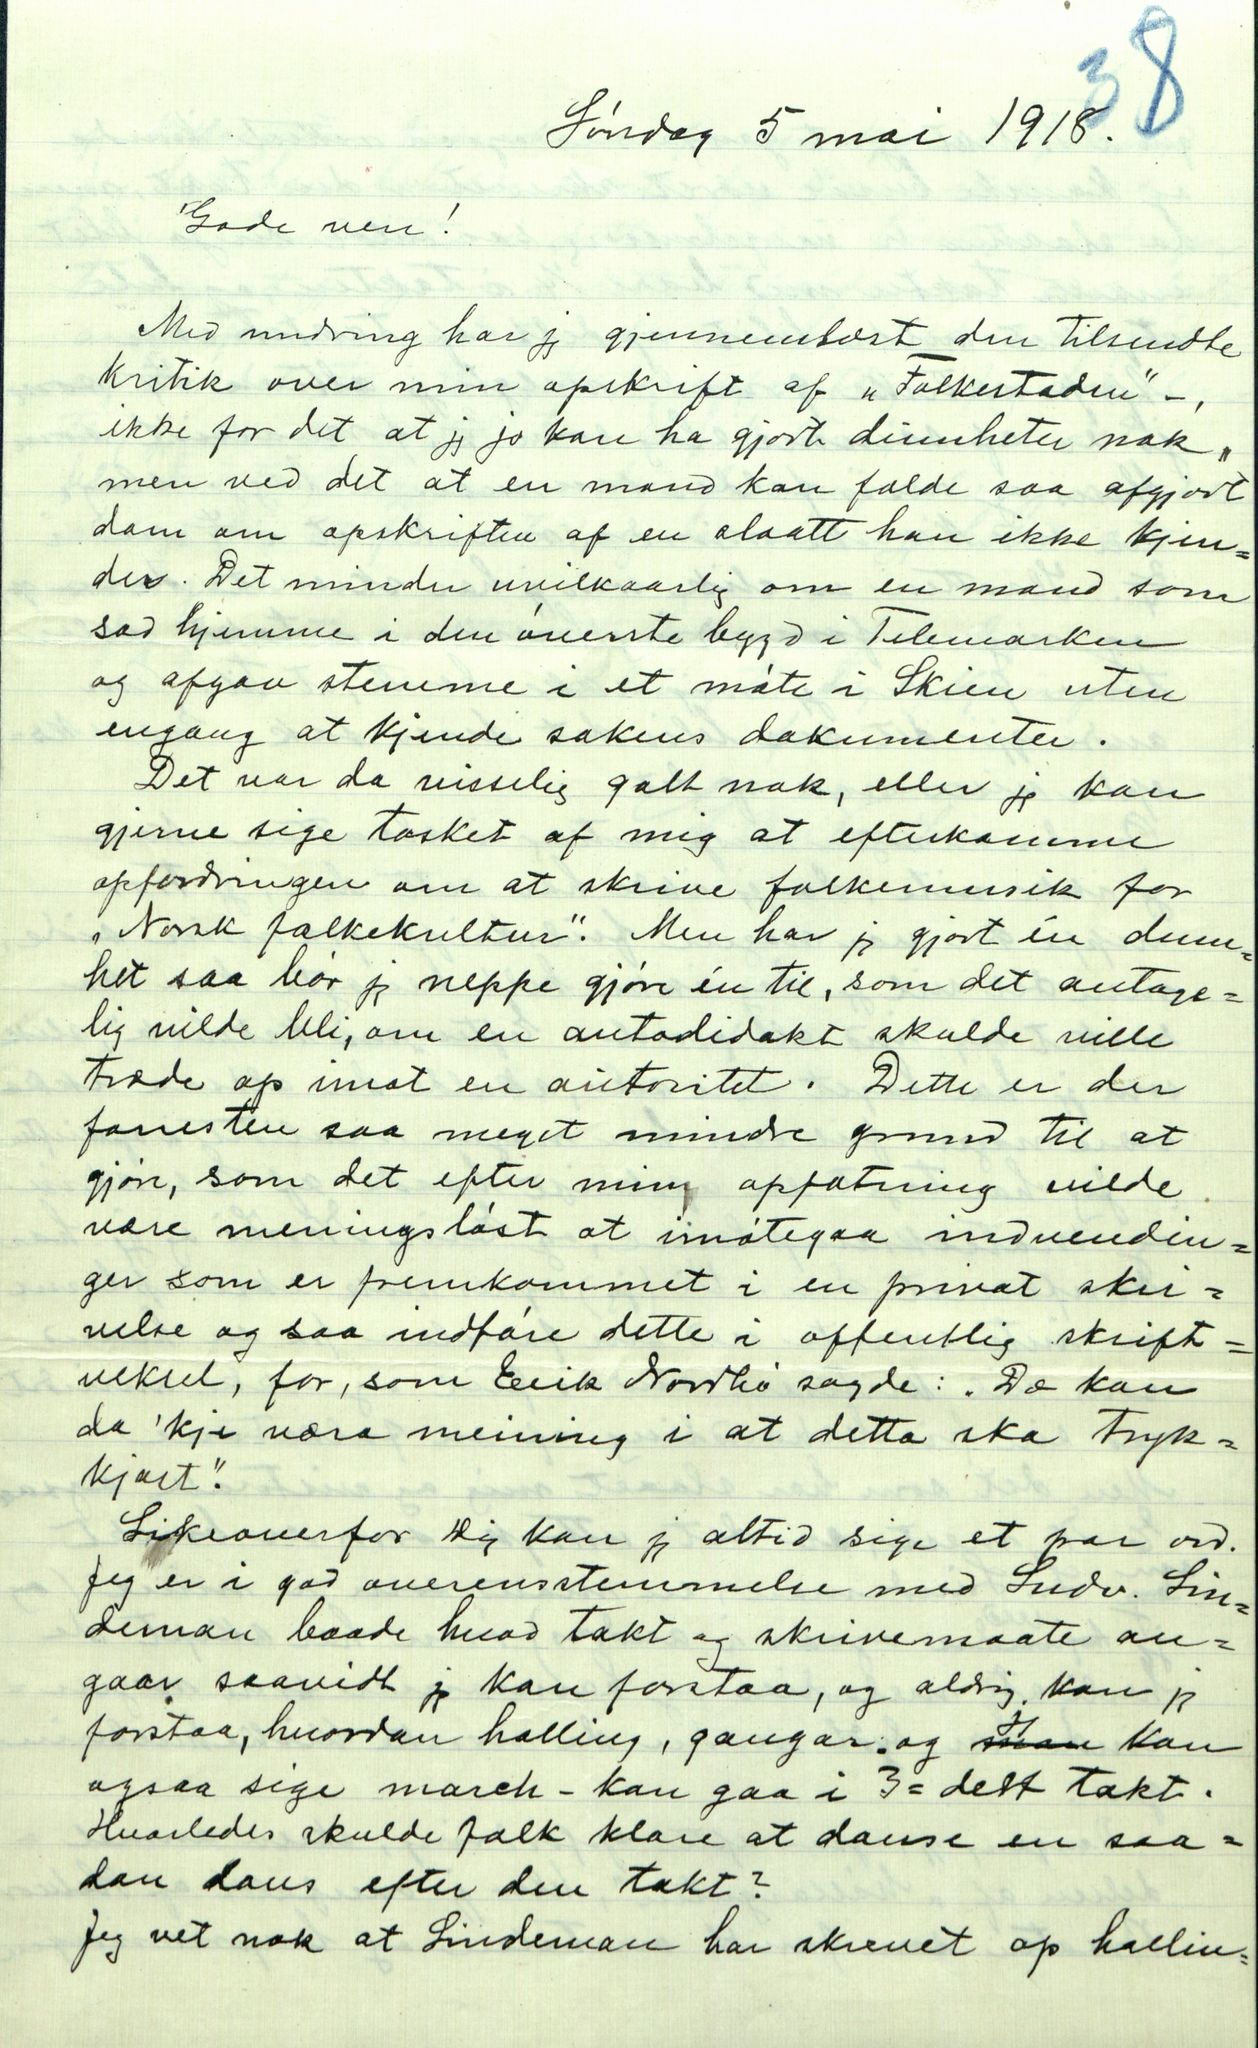 38
Søndag 5 mai 1918.
Gode ven!
Med undring har jg gjennemlæst den tilsendte
kritik over min opskrift af „Folkestaden" –,
ikke for det at jg jo kan ha gjort dumheter nok,
men ved det at en mand kan fælde saa afgjort
dom om opskriften af en slaatt han ikke kjen=
der. Det minder uvilkaarlig om en mand som
sad hjemme i den øverste bygd i Telemarken
og afgav stemme i et møte i Skien uten
engang at kjende sakens dokumenter.
Det var da visselig galt nok, eller jg kan
gjerne sige tosket af mig at efterkomme
opfordringen om at skrive folkemusik for
„Norsk folkekultur". Men har jg gjort én dum=
het saa bør jg neppe gjøre én til, som det antage=
lig vilde bli, om en autodidakt skulde ville
træde op imot en autoritet. Dette er der
forresten saa meget mindre grund til at
gjøre, som det efter min opfatning vilde
være meningsløst at imøtegaa indvendin=
ger som er fremkommet i en privat skri=
velse og saa indføre dette i offentlig skrift=
veksel, for, som Eerik Nordbø sagde: „Dæ kan
da 'kje væra meining i at detta ska tryk=
kjast".
Likeoverfor Dig kan jg altid sige et par ord.
Jeg er i god overensstemmelse med Ludv. Lin=
deman baade hvad takt og skrivemaate an=
gaar saavidt jg kan forstaa, og aldrig kan jg
forstaa, hvordan halling, gangar og kan
ogsaa sige march – kan gaa i 3=delt takt.
Hvorledes skulde folk klare at danse en saa=
dan dans efter den takt?
Jeg vet nok at Lindeman har skrevet op hallin=